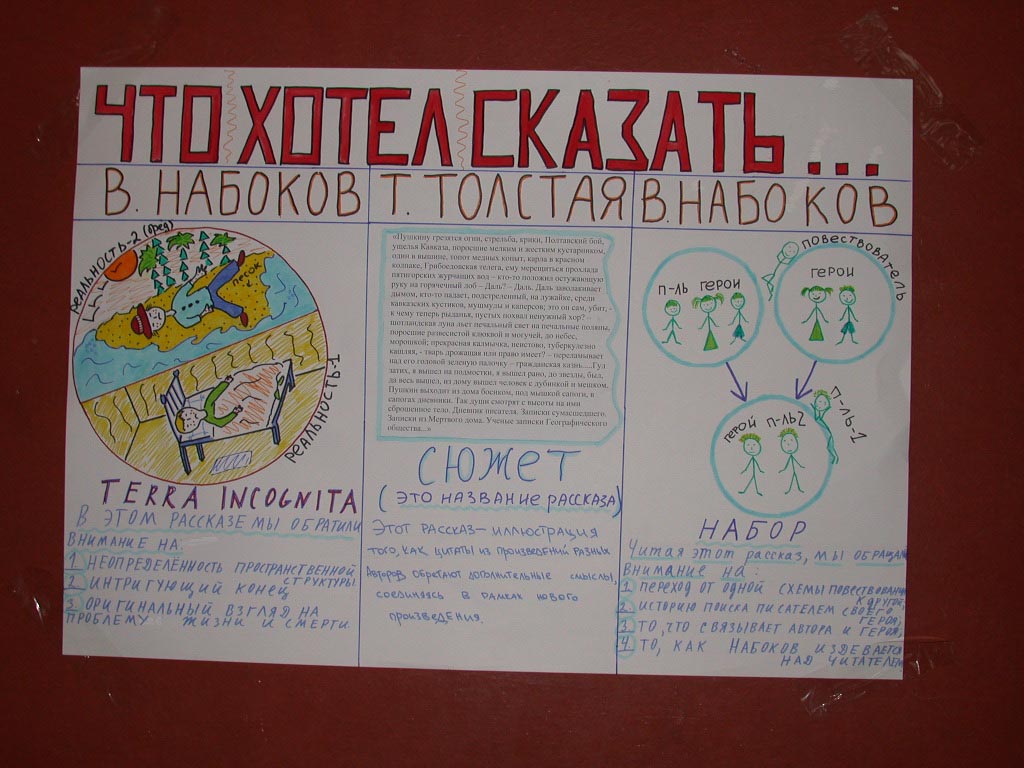 ЧТО ХОТЕЛ СКАЗАТЬ ...
В. НАБОКОВ
РЕАЛЬНОСТЬ-2 (бред)
ПЕСОК
РЕАЛЬНОСТЬ-1
TERRA INCOGNITA
В ЭТОМ РАССКАЗЕ МЫ ОБРАТИЛИ
ВНИМАНИЕ НА:
1. НЕОПРЕДЕЛЁННОСТЬ ПРОСТРАНСТВЕННОЙ
СТРУКТУРЫ
2. ИНТРИГУЮЩИЙ КОНЕЦ
3. ОРИГИНАЛЬНЫЙ ВЗГЛЯД НА
ПРОБЛЕМУ ЖИЗНИ И СМЕРТИ.
Т. ТОЛСТАЯ
«Пушкину грезятся огни, стрельба, крики, Полтавский бой,
ущелья Кавказа, поросшие мелким и жестким кустарником,
один в вышине, топот медных копыт, карла в красном
колпаке, Грибоедовская телега, ему мерещится прохлада
пятигорских журчащих вод – кто-то положил остужающую
руку на горячечный лоб – Даль? – Даль. Даль заволакивает
дымом, кто-то падает, подстреленный, на лужайке, среди
кавказских кустиков, мушмулы и каперсов; это он сам, убит, -
к чему теперь рыданья, пустых похвал ненужный хор? –
шотландская луна льет печальный свет на печальные поляны,
поросшие развесистой клюквой и могучей, до небес,
морошкой; прекрасная калмычка, неистово, туберкулезно
кашляя, - тварь дрожащая или право имеет? – переламывает
над его головой зеленую палочку – гражданская казнь....Гул
затих, я вышел на подмостки, я вышел рано, до звезды, был,
да весь вышел, из дому вышел человек с дубинкой и мешком.
Пушкин выходит из дома босиком, под мышкой сапоги, в
сапогах дневники. Так души смотрят с высоты на ими
сброшенное тело. Дневник писателя. Записки сумасшедшего.
Записки из Мертвого дома. Ученые записки Географического
общества...»
СЮЖЕТ
(ЭТО НАЗВАНИЕ РАССКАЗА)
ЭТОТ РАССКАЗ — ИЛЛЮСТРАЦИЯ
ТОГО, КАК ЦИТАТЫ ИЗ ПРОИЗВЕДЕНИЙ РАЗНЫХ
АВТОРОВ ОБРЕТАЮТ ДОПОЛНИТЕЛЬНЫЕ СМЫСЛЫ,
СОЕДИНЯЯСЬ В РАМКАХ НОВОГО
ПРОИЗВЕДЕНИЯ.
В. НАБОКОВ
П-ЛЬ ГЕРОИ
ПОВЕСТВОВАТЕЛЬ
ГЕРОИ
ГЕРОЙ П-ЛЬ2
П-ЛЬ-1
НАБОР
Читая этот рассказ, мы ОБРАЩАЛИ
ВНИМАНИЕ на:
1. ПЕРЕХОД ОТ ОДНОЙ СХЕМЫ ПОВЕСТВОВАНИЯ
К ДРУГОЙ,
2. ИСТОРИЮ ПОИСКА ПИСАТЕЛЕМ СВОЕГО
ГЕРОЯ,
3. ТО, ЧТО СВЯЗЫВАЕТ АВТОРА И ГЕРОЯ,
4. ТО, КАК НАБОКОВ ИЗДЕВАЕТСЯ
НАД ЧИТАТЕЛЕМ